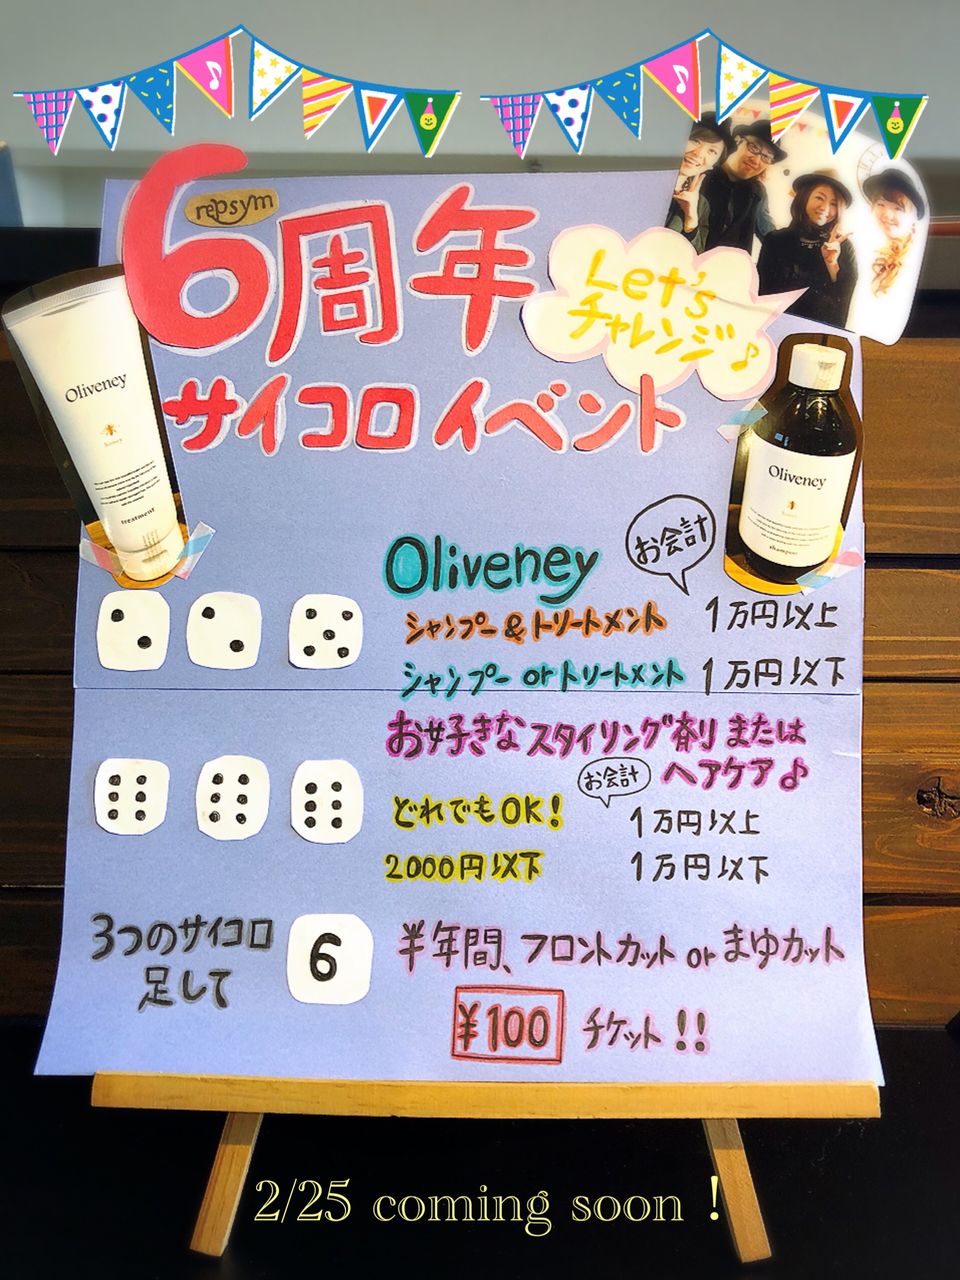 repsym
6周年
Let's
チャレンジ♪
サイコロイベント
Oliveney
honey
treatment
Oliveney
honey
shampoo
Oliveney
お会計
シャンプー&トリートメント 1万円以上
シャンプー or トリートメント 1万円以下
お好きなスタイリング剤または
ヘアケア♪
お会計
どれでもOK! 1万円以上
2000円以下 1万円以下
3つのサイコロ
足して
6
半年間、フロントカット or まゆカット
¥100 チケット!!
2/25 coming soon!